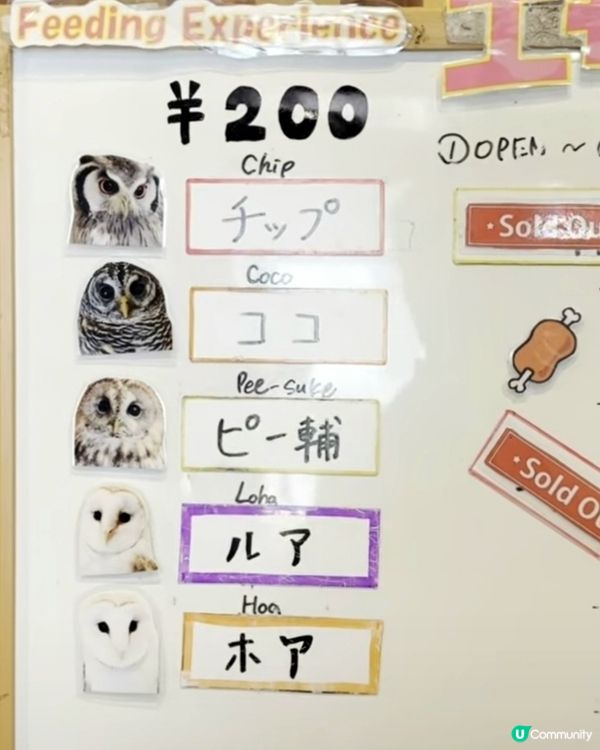 Feeding Experience
¥200
Chip
チップ
Coco
ココ
Pee-suke
ピー輔
Loha
ルア
Hoa
ホア
①OPEN ~
Sold Ou
Sold O
U Community